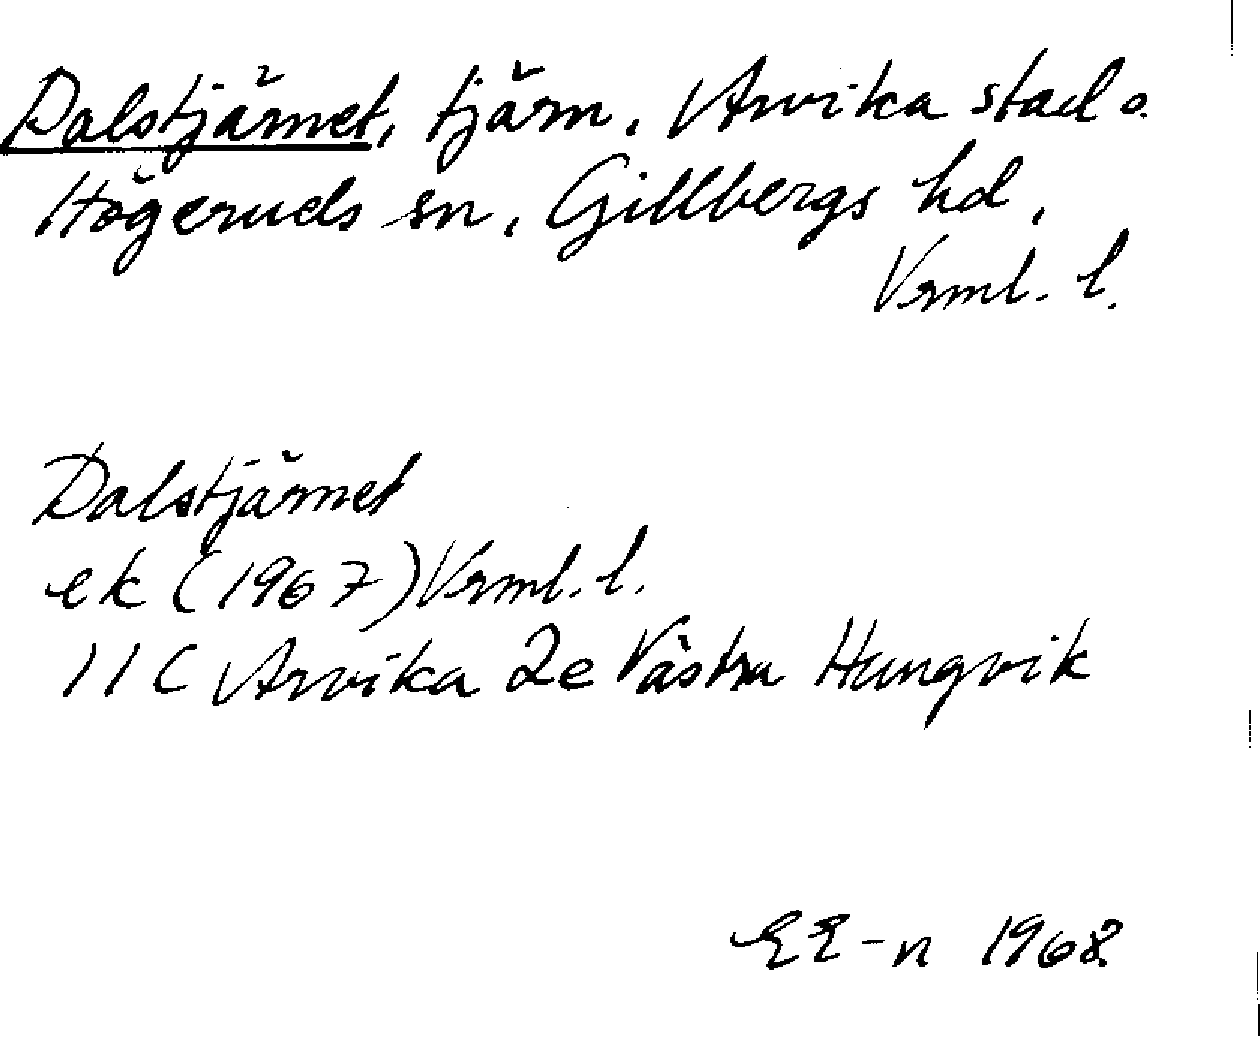 Dalstjärnet, tjärn, Arvika stad o.
Högeruds sn, Gillbergs hd,
Vrml. l.
Dalstjärnet
ek (1967) Vrml. l.
11C Arvika 2e Västra Hungvik
EE-n 1968